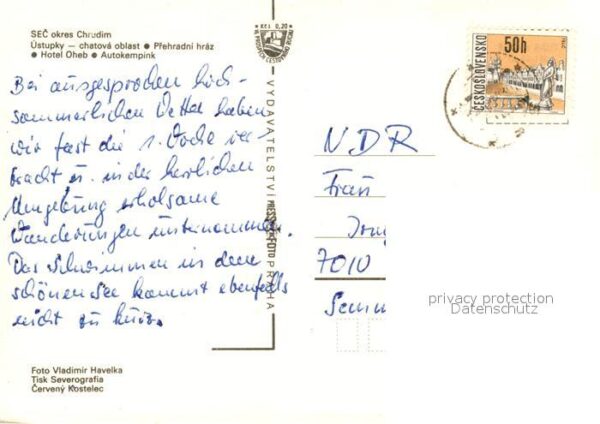 SEČ okres Chrudim
Ústupky — chatová oblast ● Přehradní hráz
● Hotel Oheb ● Autokempink
Bei ausgesprochen hoch-
sommerlichen Wetter haben
wir fast die 1. Woche ver-
bracht u. in der herrlichen
Umgebung erholsame
Wanderungen unternommen.
Das Schwimmen in dem
schönen See kommt ebenfalls
nicht zu kurz.
Foto Vladimír Havelka
Tisk Severografia
Červený Kostelec
Kčs 0,20
VYDAVATELSTVÍ PRESSFOTO PRAHA
ČESKOSLOVENSKO
50h
NDR
Frau
7010
privacy protection
Datenschutz